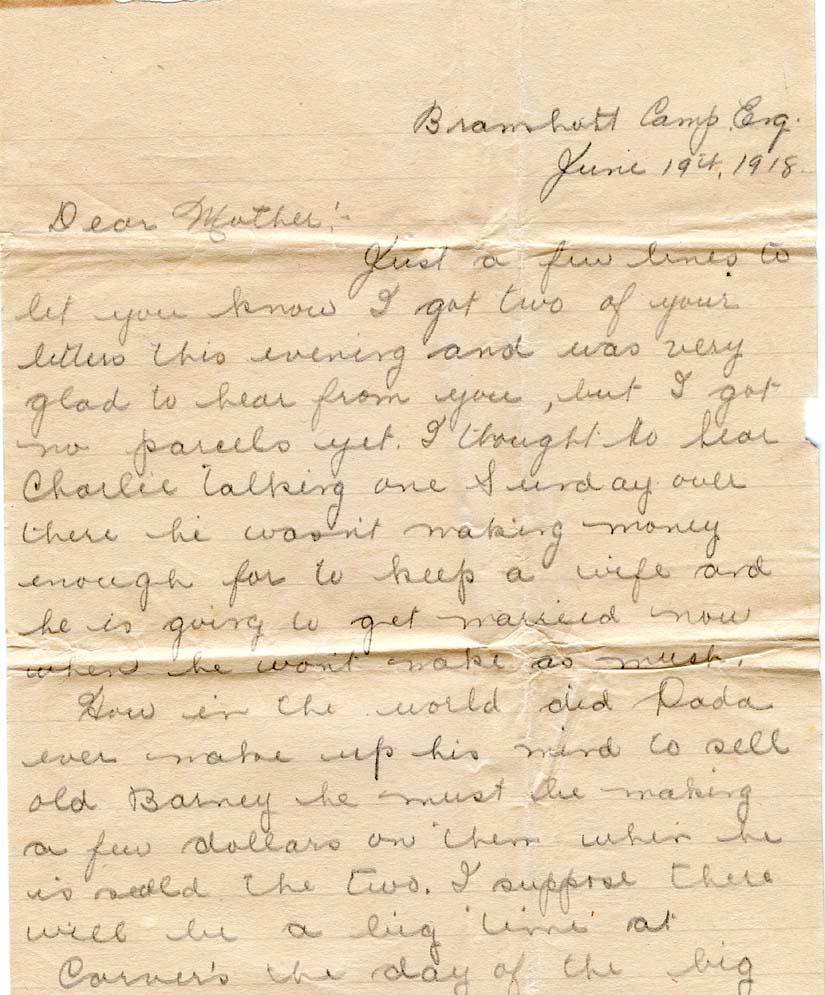 Bramhott Camp. Eng.
June 19th, 1918.
Dear Mother:-
Just a few lines to
let you know I got two of your
letters this evening and was very
glad to hear from you, but I got
no parcels yet. I thought to hear
Charlie talking one Sunday over
there he wasn't making money
enough for to keep a wife and
he is going to get married now
when he won't make as much.
How in the world did Dada
ever make up his mind to sell
old Barney he must be making
a few dollars on them when he
is sold the two. I suppose there
will be a big time at
the day of the big